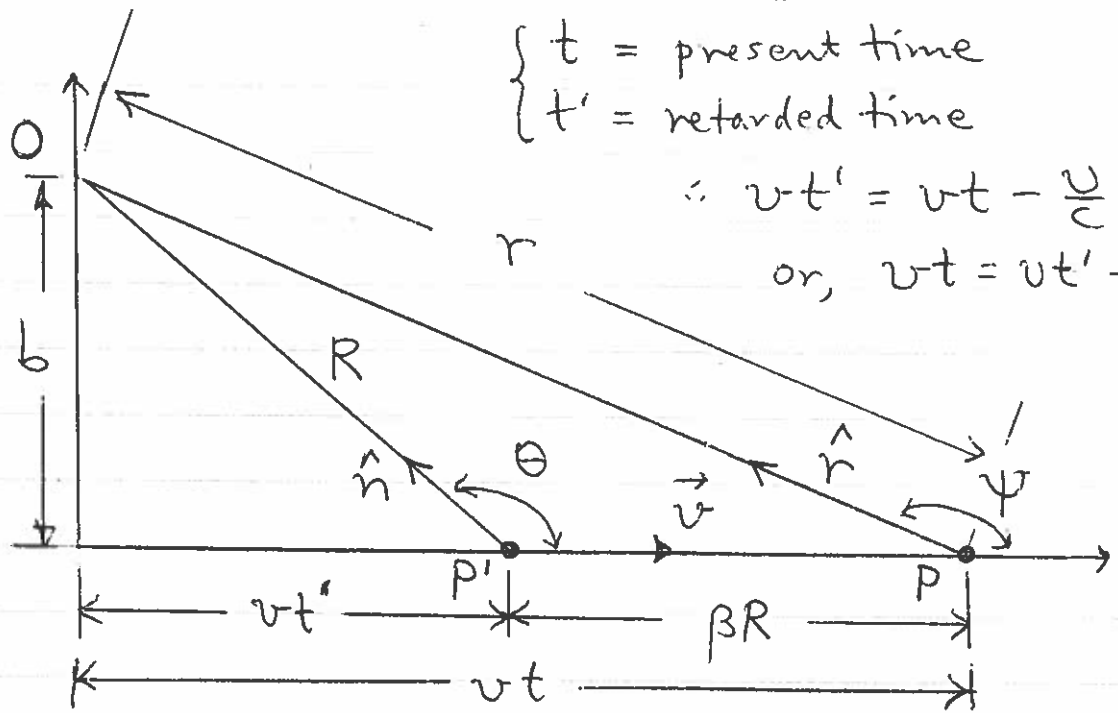 t = present time
t' = retarded time
∴ vt' = vt - v/c
or, vt = vt' -
O
r
b
R
n̂
θ
v⃗
r̂
ψ
P'
P
vt'
βR
vt